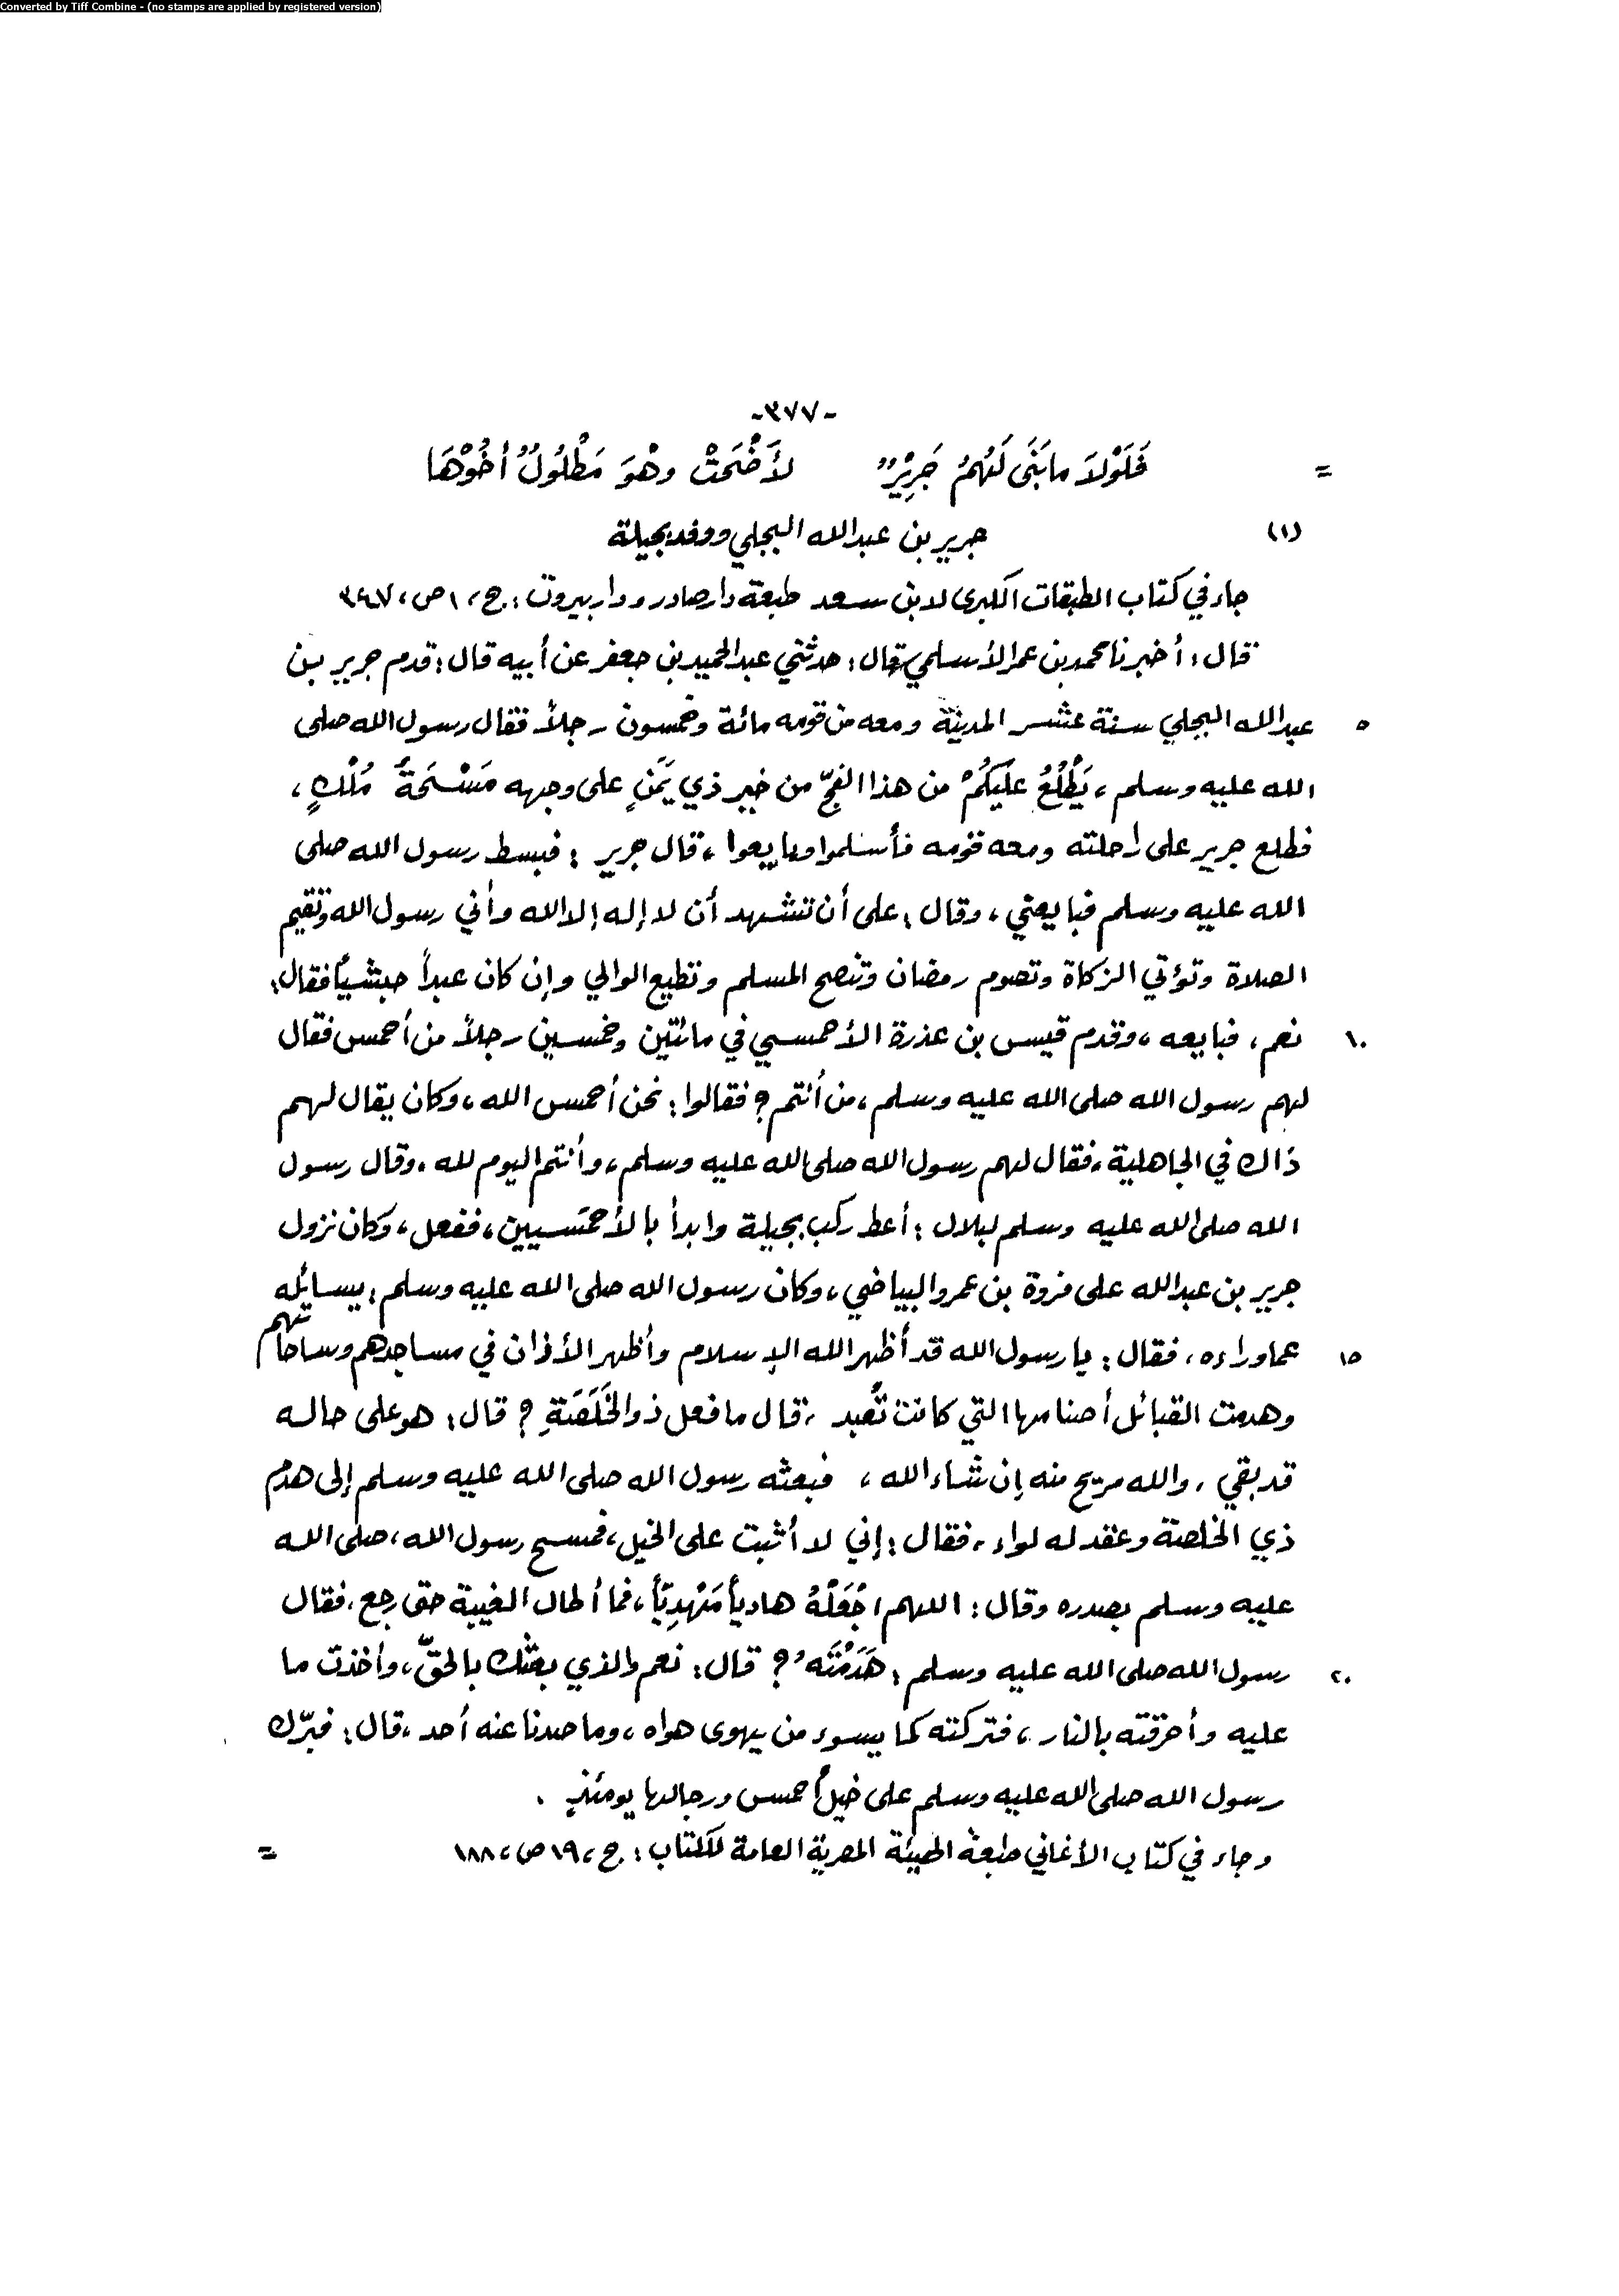 Converted by Tiff Combine - (no stamps are applied by registered version)
-٣٧٧-
= فَلَوْلاَ ما بَنَى لَهُمُ جَرِيْرٌ لأَضْحَتْ وهْوَ مَطْلُولٌ أخُوْهَا
(١) جرير بن عبدالله البجلي ووفد بجيلة
جاء في كتاب الطبقات الكبرى لابن سعد طبعة دار صادر ودار بيروت: ج، ١ ص، ٣٤٧
قال: أخبرنا محمد بن عمر الأسلمي قال: حدثني عبد الحميد بن جعفر عن أبيه قال: قدم جرير بن
٥ عبدالله البجلي سنة عشر المدينة ومعه من قومه مائة وخمسون رجلاً فقال رسول الله صلى
الله عليه وسلم، يَطْلُعُ عليَكُمْ من هذا الفجّ من خير ذي يَمَنٍ على وجهه مَسْحَةُ مُلْكٍ،
فطلع جرير على راحلته ومعه قومه فأسلموا وبايعوا، قال جرير: فبسط رسول الله صلى
الله عليه وسلم فبايعني، وقال: على أن تشهد أن لا إله إلا الله وأني رسول الله وتقيم
الصلاة وتؤتي الزكاة وتصوم رمضان وتنصح المسلم وتطيع الوالي وإن كان عبداً حبشيّاً فقال:
١٠ نعم، فبايعه، وقدم قيس بن عذرة الأحمسي في مائتين وخمسين رجلاً من أحمس فقال
لهم رسول الله صلى الله عليه وسلم، من أنتم؟ فقالوا: نحن أحمس الله، وكان يقال لهم
ذاك في الجاهلية، فقال لهم رسول الله صلى الله عليه وسلم، وأنتم اليوم لله، وقال رسول
الله صلى الله عليه وسلم لبلال: أعط ركب بجيلة وابدأ بالأحمَسيين، ففعل، وكان نزول
جرير بن عبدالله على فروة بن عمرو البياضي، وكان رسول الله صلى الله عليه وسلم: يسائله
١٥ عما وراءه، فقال: يا رسول الله قد أظهر الله الإسلام وأظهر الأذان في مساجدهم وساحاتهم
وهدمت القبائل أصنامها التي كانت تُعبد، قال ما فعل ذو الخَلَصَةِ؟ قال: هو على حاله
قد بقي، والله مريح منه إن شاء الله، فبعثه رسول الله صلى الله عليه وسلم إلى هدم
ذي الخلصة وعقد له لواء، فقال: إني لا أثبت على الخيل، فمسح رسول الله، صلى الله
عليه وسلم بصدره وقال: اللهم اجْعَلْهُ هادياً مَهْدِيّاً، فما أطال الغيبة حتى رجع، فقال
٢٠ رسول الله صلى الله عليه وسلم: هَدَمْتَه؟ قال: نعم والذي بعثك بالحقّ، وأخذت ما
عليه وأحرقته بالنار، فتركته كما يسوء من يهوى هواه، وما صدنا عنه أحد، قال: فبرّك
رسول الله صلى الله عليه وسلم على خيل أحمس ورجالها يومئذٍ .
وجاء في كتاب الأغاني طبعة الهيئة المصرية العامة للكتاب: ج، ١٩ ص، ١٨٨ =